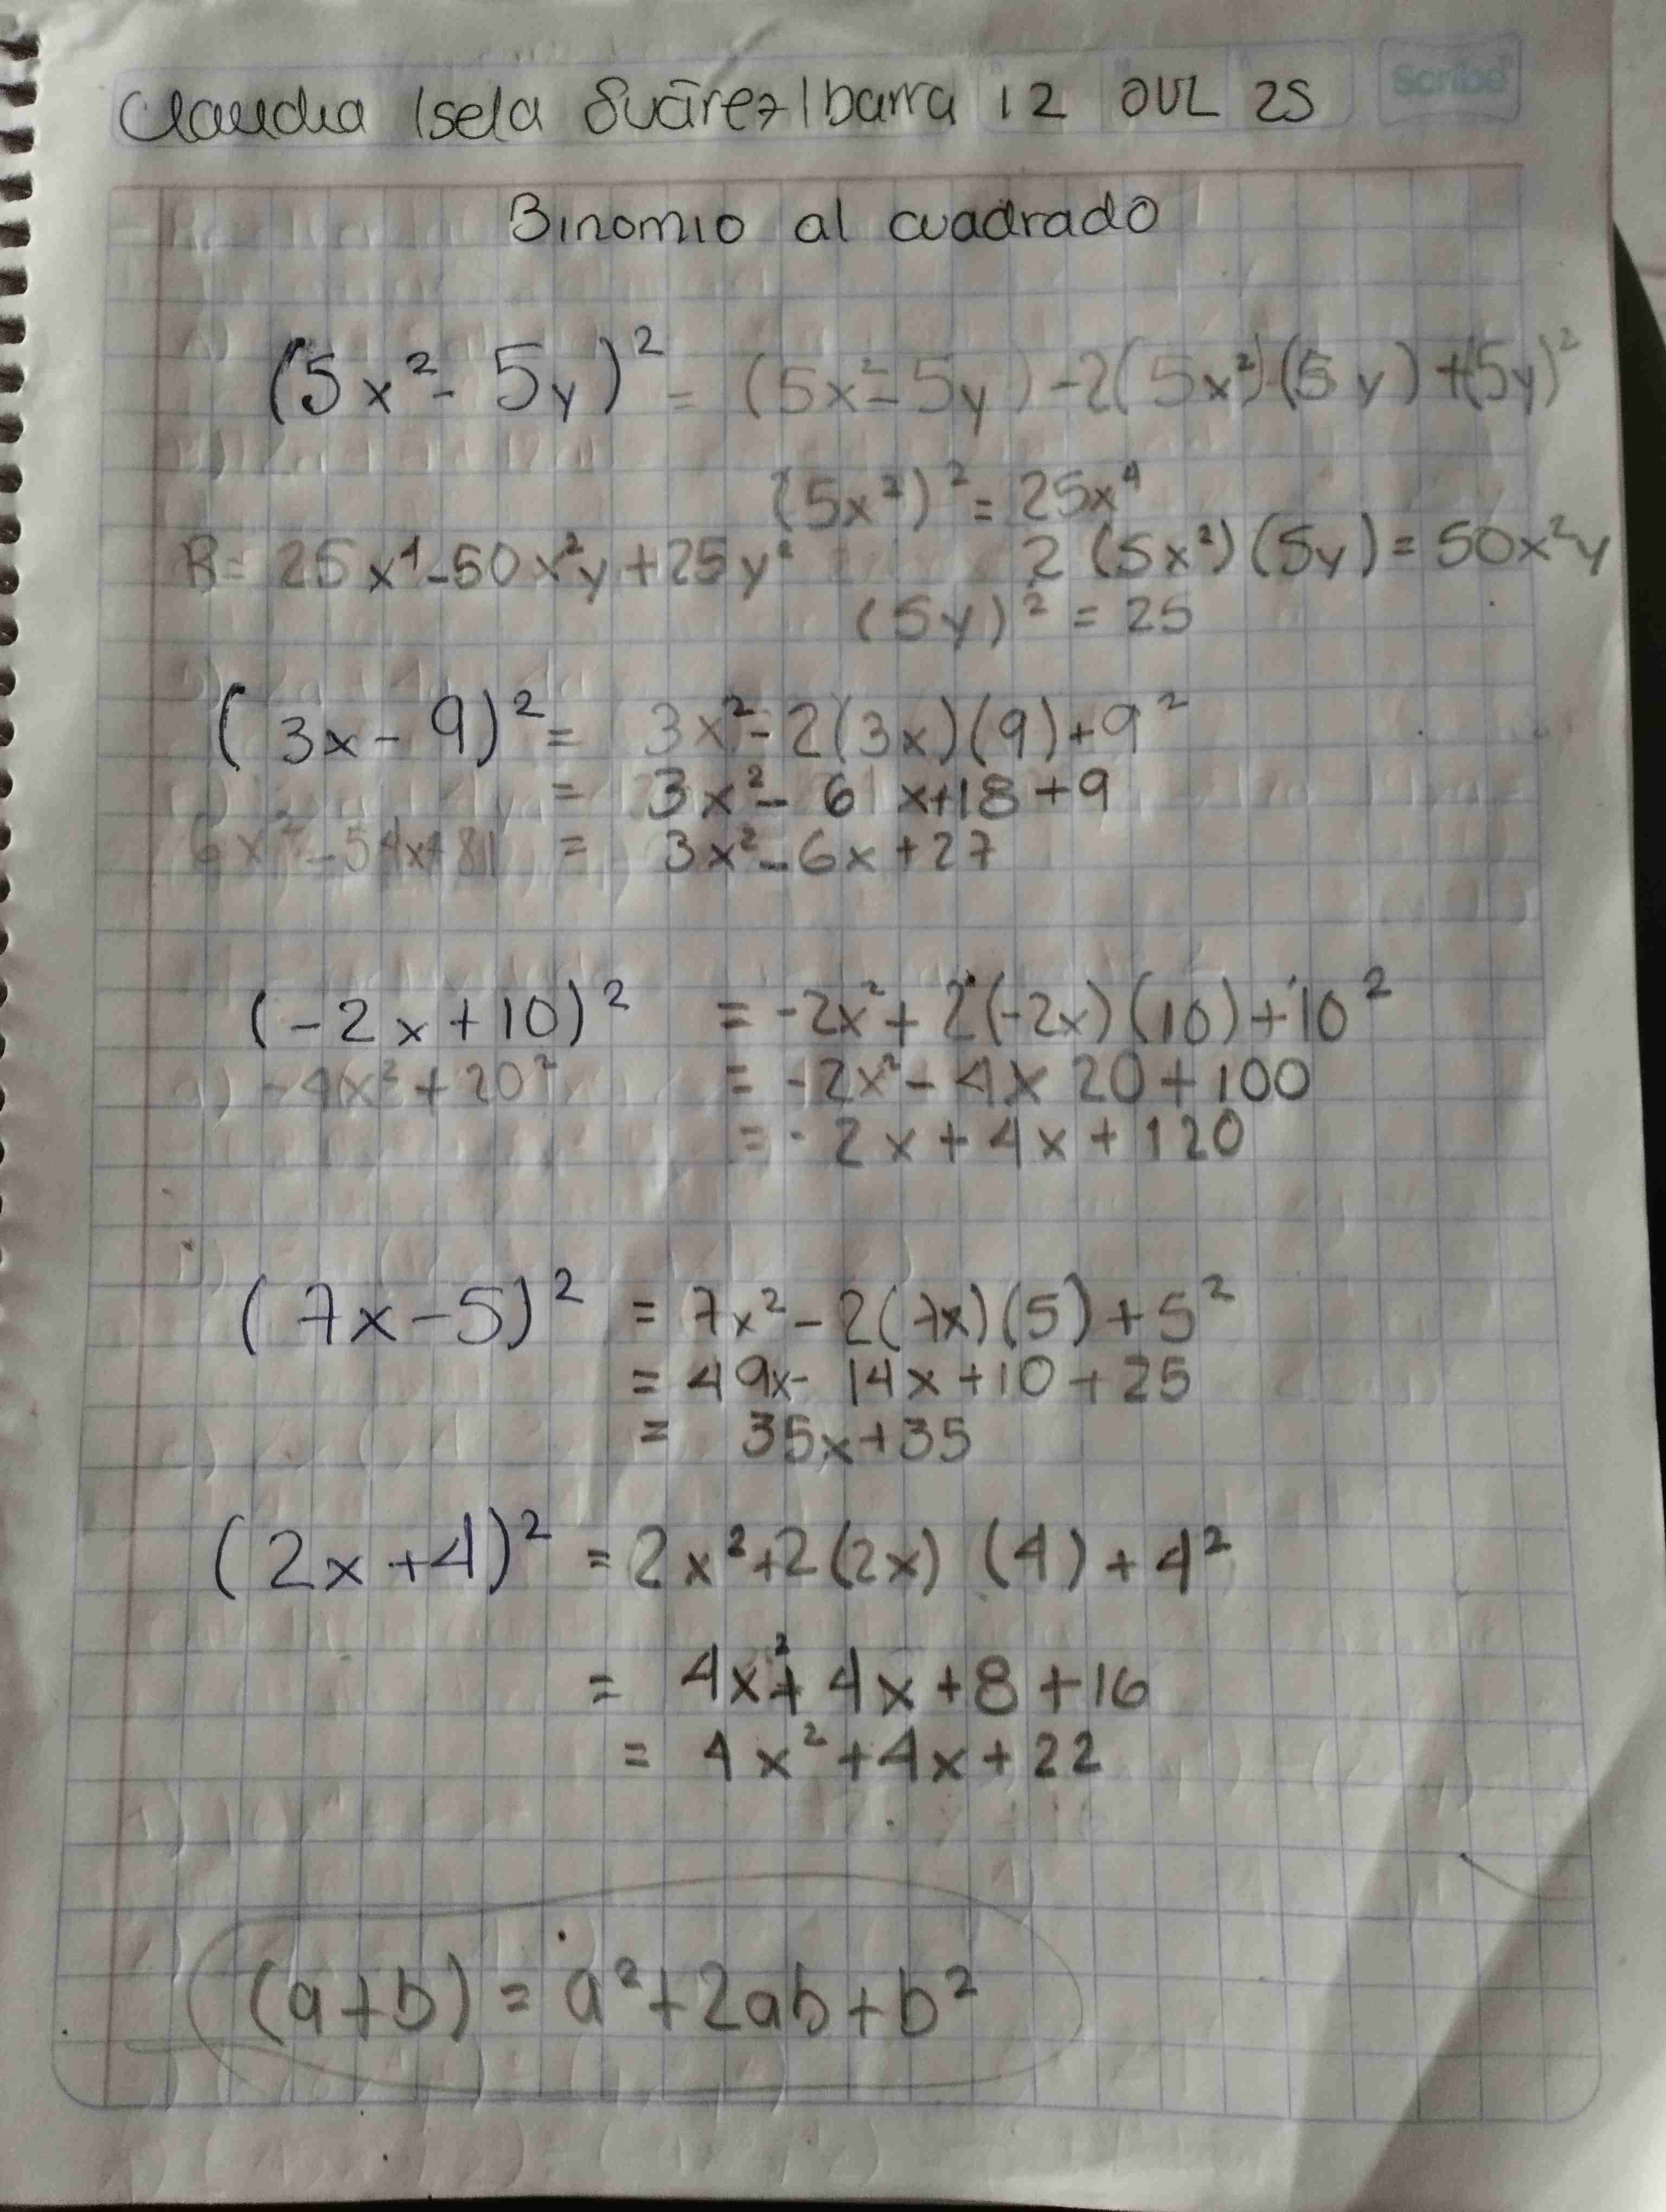 Scribe
Claudia Isela Suárez Ibarra 12 JUL 25
Binomio al cuadrado
(5x² - 5y)² = (5x² - 5y) - 2(5x²)(5y) + (5y)²
(5x²)² = 25x⁴
R = 25x⁴ - 50x²y + 25y² 2 (5x²)(5y) = 50x²y
(5y)² = 25
(3x - 9)² = 3x² - 2(3x)(9) + 9²
= 3x² - 6 x + 18 + 9
6x² - 54x + 81 = 3x² - 6x + 27
(-2x + 10)² = -2x² + 2(-2x)(10) + 10²
-4x² + 20² = -2x² - 4x 20 + 100
= -2x + 4x + 120
(7x - 5)² = 7x² - 2(7x)(5) + 5²
= 49x - 14x + 10 + 25
= 35x + 35
(2x + 4)² = 2x² + 2(2x) (4) + 4²
= 4x² + 4x + 8 + 16
= 4x² + 4x + 22
(a + b) = a² + 2ab + b²